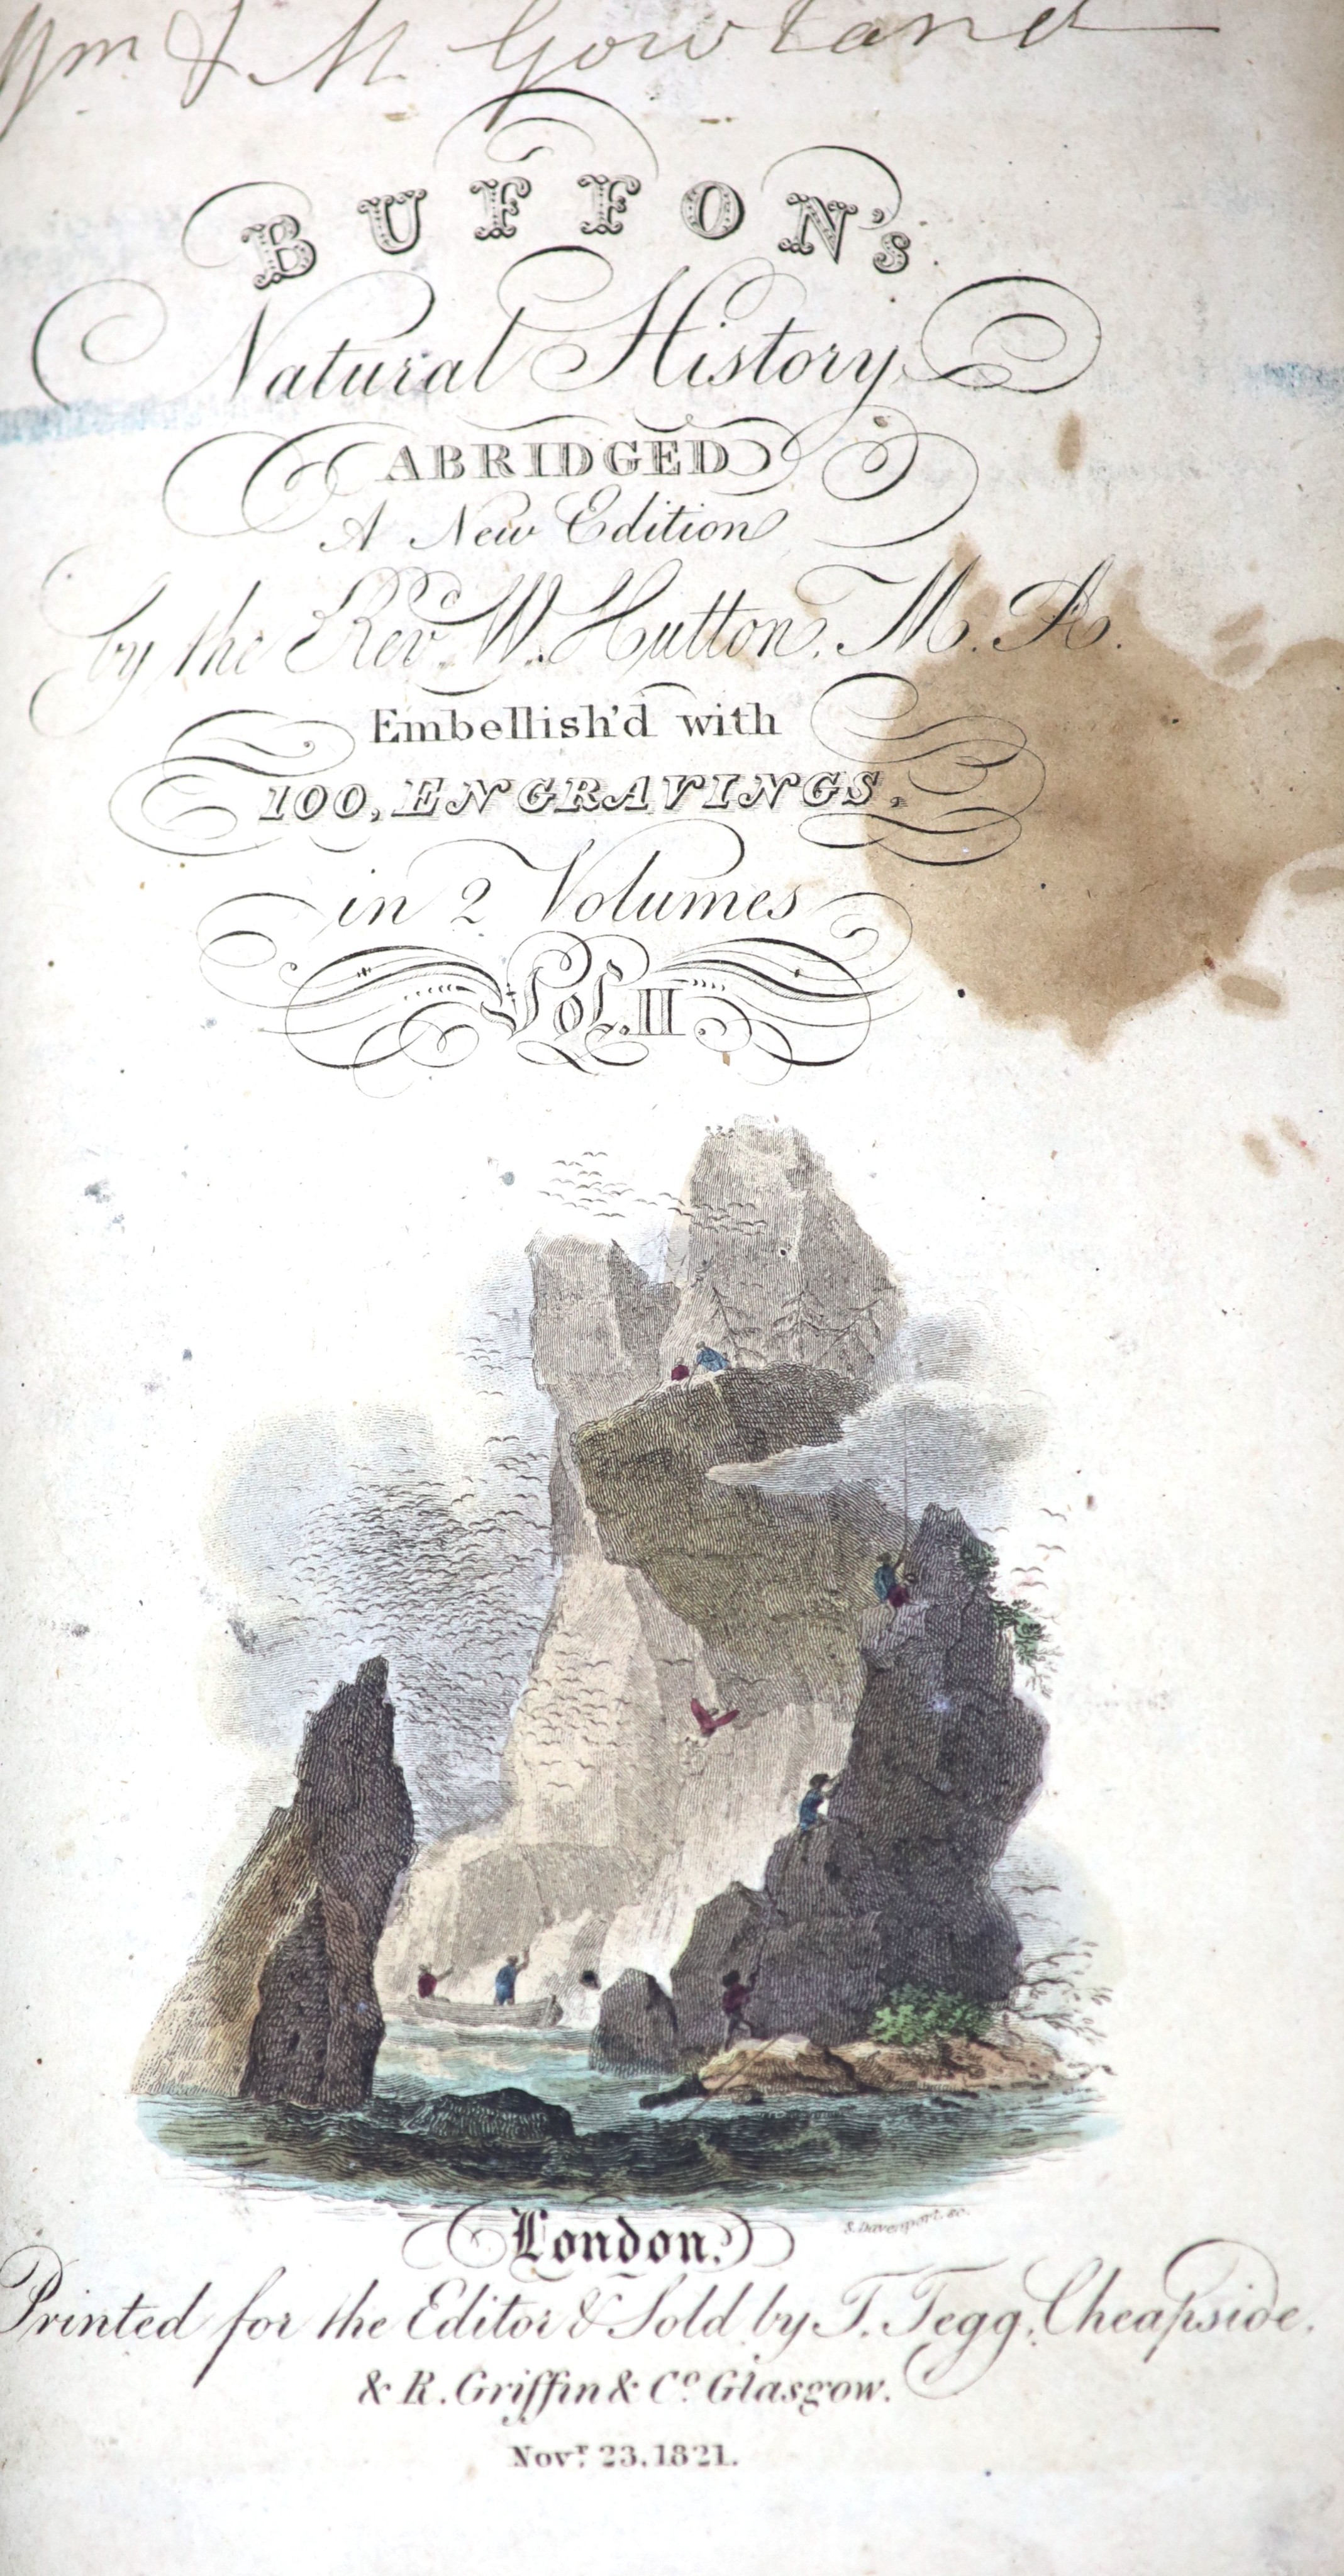 Wm & M Gowland
BUFFON's
Natural History
ABRIDGED
A New Edition
by the Rev. W. Hutton, M. A.
Embellish'd with
100, ENGRAVINGS,
in 2 Volumes
Vol. II.
S. Davenport. sc.
London.
Printed for the Editor & Sold by T. Tegg, Cheapside,
& R. Griffin & Co. Glasgow.
Novr. 23. 1821.